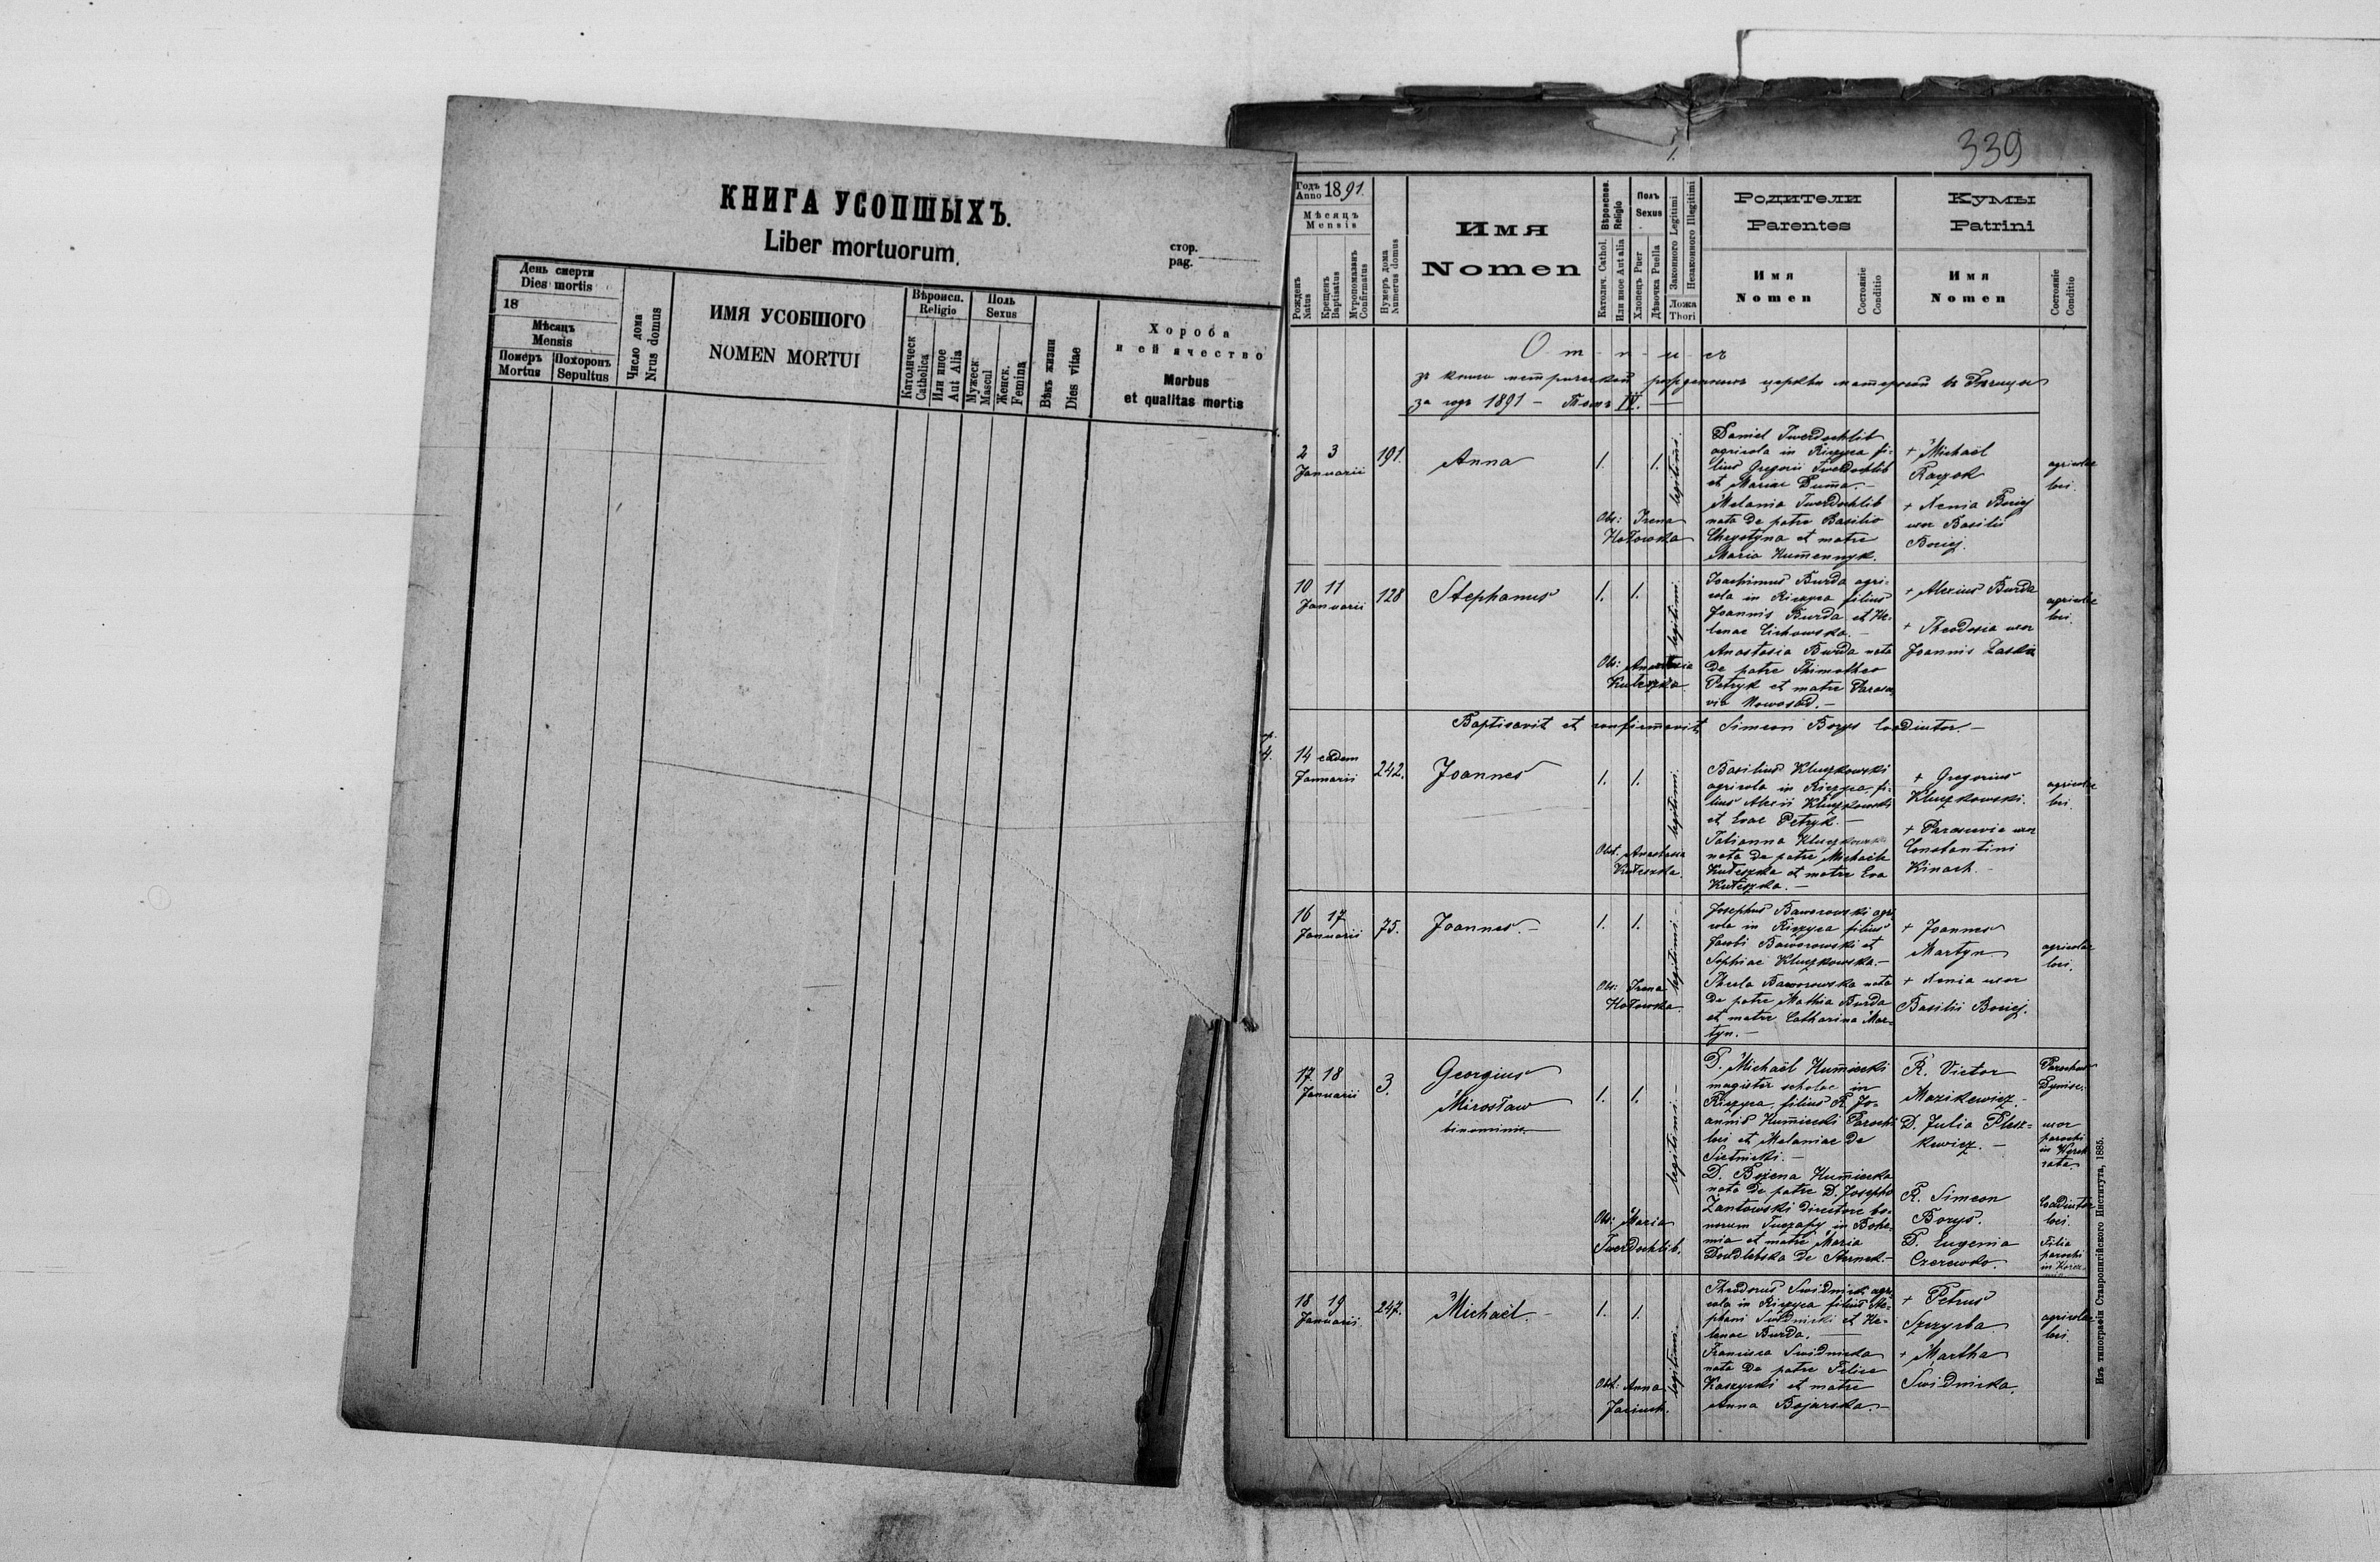 КНИГА УСОПШЫХЪ.
Liber mortuorum.
стор.
pag.
День смерти
Dies mortis
18
Мѣсяцъ
Mensis
Померъ
Mortus
Похоронъ
Sepultus
Число дома
Nrus domus
ИМЯ УСОБШОГО
NOMEN MORTUI
Вѣроисп.
Religio
Католическ
Catholica
Или иное
Aut Alia
Поль
Sexus
Мужеск
Mascul
Женск.
Femina
Вѣкъ жизни
Dies vitae
Хороба
и ей ячество
Morbus
et qualitas mortis
339
1.
Годъ
Anno 1891.
Мѣсяцъ
Mensis
Рожденъ
Natus
Крещенъ
Baptisatus
Мѵропомазанъ
Confirmatus
Нумеръ дома
Numerus domus
Имя
Nomen
Вѣроиспов.
Religio
Католич. Cathol.
Или иное Aut alia
Полъ
Sexus
Хлопецъ Puer
Дѣвочка Puella
Законного Legitimi
Незаконного Illegitimi
Ложа
Thori
Родители
Parentes
Имя
Nomen
Состояніе
Conditio
Кумы
Patrini
Имя
Nomen
Состояніе
Conditio
за годъ 1891 - Томъ IV.
2 3
Januarii
191.
Anna
1.
1.
legitimi.
Obs: Irena
Hołowska
Daniel Twerdochlib
agricola in Riczyca fi-
lius Gregorii Twerdochlib
et Mariae Duma. -
Melania Twerdochlib
nata de patre Basilio
Chrystyna et matre
Maria Humennyk.
+ Michaël
Raczok
+ Xenia Borieg
uxor Basilii
Borieg.
agricolae
loci.
10 11
Januarii
128
Stephanus
1.
1.
legitimi.
Obs: Anastasia
Kuteszka.
Joachimus Burda agri-
cola in Riczyca filius
Joannis Burda et He-
lenae Cichowska. -
Anastasia Burda nata
de patre Thimotheo
Petryk et matre Parasce-
via Nowosad. -
+ Alexius Burda
+ Theodosia uxor
Joannis Laska
agricolae
loci.
Baptisavit et confirmavit Simeon Borys Coadiutor. -
14 eadem
Januarii
242.
Joannes
1.
1.
legitimi.
Obst. Anastasia
Kuteszka.
Basilius Kluczkowski
agricola in Riczyca fi-
lius Alexii Kluczkowski
et Evae Petryk. -
Tatianna Kluczkowska
nata de patre Michaele
Kuteszka et matre Eva
Kuteszka. -
+ Gregorius
Kluczkowski.
+ Parascevia uxor
Constantini
Kinach. -
agricolae
loci.
16 17
Januarii
75.
Joannes. -
1.
1.
legitimi. -
Obs: Irena
Hołowska.
Josephus Baworowski agri-
cola in Riczyca filius
Jacobi Baworowski et
Sophiae Kluczkowska. -
Thecla Baworowska nata
de patre Mathia Burda
et matre Catharina Mar-
tyn. -
+ Joannes
Martyn
+ Xenia uxor
Basilii Borieg.
agricolae
loci.
17 18
Januarii
3.
Georgius
Mirosław
binominis
1.
1.
legitimi. -
Obs: Maria
Twerdochlib.
D. Michaël Kumiecki
magister scholae in
Riczyca, filius R. Jo-
annis Kumiecki Parochi
loci et Melaniae de
Sietnicki. -
D. Bożena Kumiecka
nata de patre D. Josepho
Zantowski directore bo-
norum Tuczapy in Bohe-
mia et matre Maria
Doudlebska de Sternek. -
R. Victor
Mazikewicz. -
D. Julia Plesz-
kewicz. -
R. Simeon
Borys.
D. Eugenia
Czerewko.
Parochus
uxor
parochi
in Werch-
rata.
Coadiutor
loci.
Filia
parochi
18 19
Januarii
247.
Michaël. -
1.
1.
legitimi.
Obst: Anna
Jaciuch.
Theodorus Swidnicki agri-
cola in Riczyca filius Ste-
phani Swidnicki et He-
lenae Burda.
Francisca Swidnicka
nata de patre Felice
Kaszycki et matre
Anna Bojarska. -
+ Petrus
Szczyrba
+ Martha
Swidnicka.
agricolae
loci.
Изъ типографіи Ставропигійского Института, 1885.